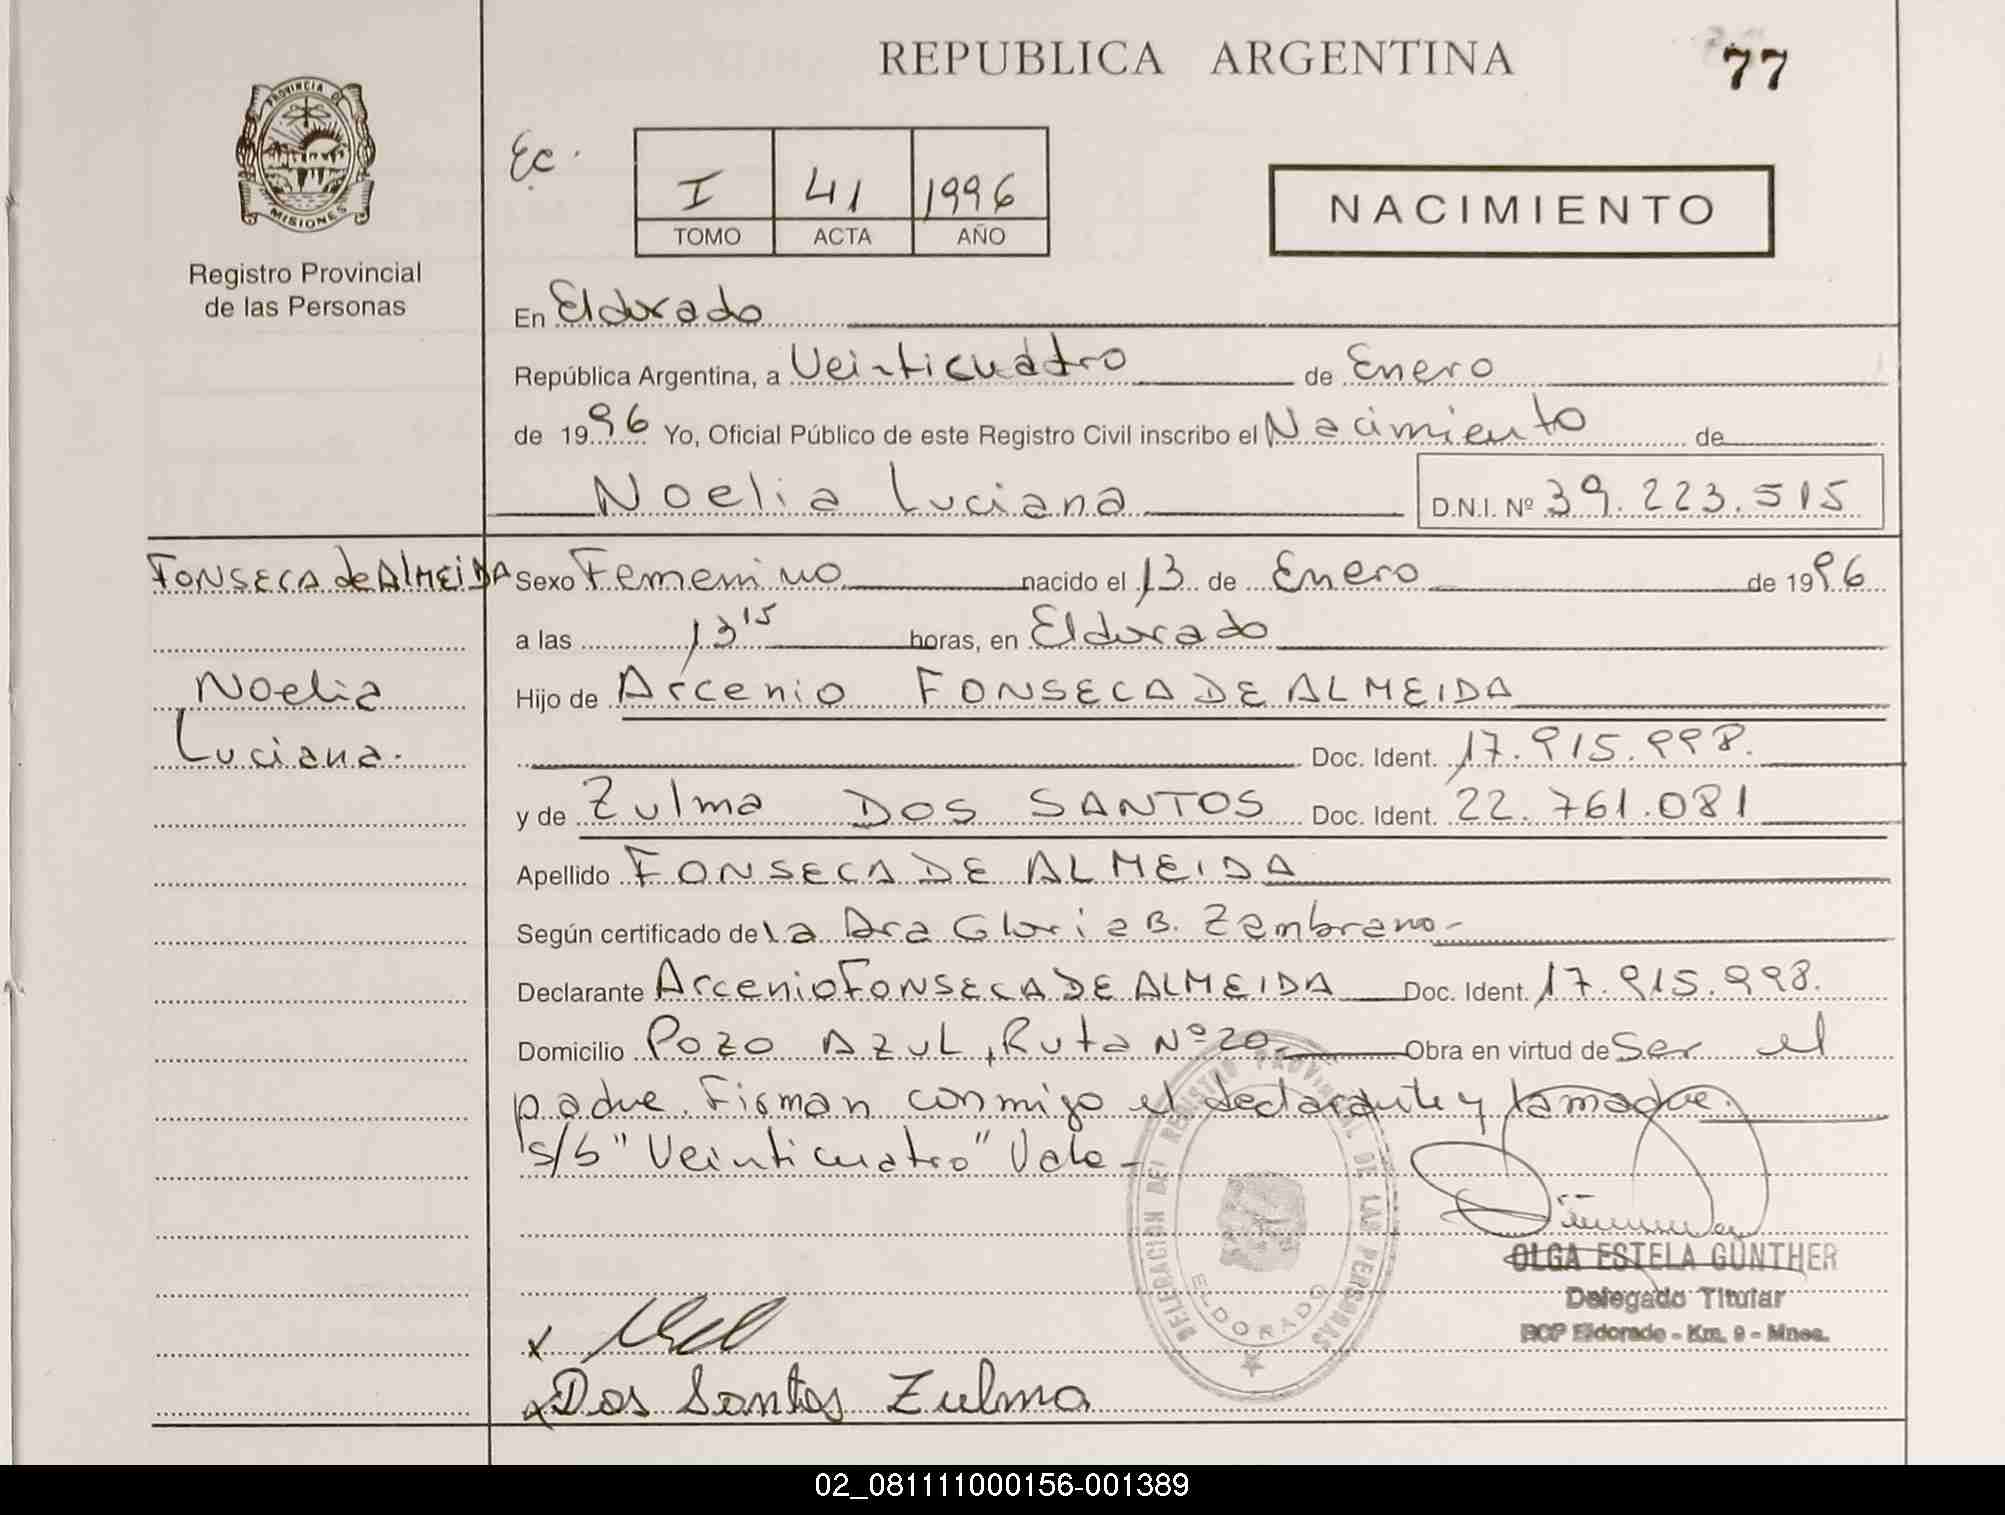 REPUBLICA ARGENTINA
77
PROVINCIA DE MISIONES
Registro Provincial
de las Personas
Ec.
I 41 1996
TOMO ACTA AÑO
NACIMIENTO
En Eldorado
República Argentina, a Veinticuatro de Enero
de 1996 Yo, Oficial Público de este Registro Civil inscribo el Nacimiento de
Noelia Luciana D.N.I. Nº 39.223.515
FONSECA de ALMEIDA
Noelia
Luciana.
Sexo Femenino nacido el 13 de Enero de 1996
a las 13 15 horas, en Eldorado
Hijo de Arcenio FONSECA DE ALMEIDA
Doc. Ident. 17.915.998.
y de Zulma DOS SANTOS Doc. Ident. 22.761.081
Apellido FONSECA DE ALMEIDA
Según certificado de la Dra Gloria B. Zambrano-
Declarante Arcenio FONSECA DE ALMEIDA Doc. Ident. 17.915.998.
Domicilio POZO AZUL, Ruta Nº 20 Obra en virtud de Ser el
padre. Firman conmigo el declarante y la madre.
s/b "Veinticuatro" Vale-
DELEGACION DEL REGISTRO PROVINCIAL DE LAS PERSONAS
ELDORADO
OLGA ESTELA GÜNTHER
Delegado Titular
RCP Eldorado - Km. 9 - Mnes.
x
x Dos Santos Zulma
02_081111000156-001389